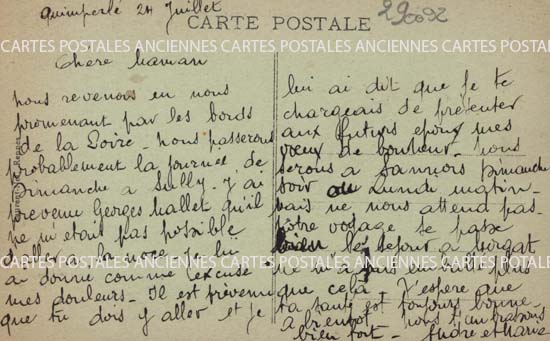 Quimperlé 24 Juillet
CARTE POSTALE
29092
CARTES POSTALES ANCIENNES CARTES POSTALES ANCIENNES CARTES POSTALES ANCIENNES
Chère Maman
nous revenons en nous
promenant par les bords
de la Loire. nous passerons
probablement la journée de
Dimanche a Sully. J'ai
prevenu Georges Mallet qu'il
ne m'était pas possible
d'aller a la noce. Je lui
ai donné comme excuse
mes douleurs. Il est prévenu
que tu dois y aller et je
lui ai dit que je te
chargeais de présenter
aux futurs époux mes
voeux de bonheur. nous
serons a Sannois Dimanche
soir ou Lundi matin.
mais ne nous attend pas.
nôtre voyage se passe
bien le séjour a Morgat
ne m'a pas emballé plus
que cela. J'espère que
ta santé est toujours bonne.
a bientôt nous t'embrassons
bien fort. André et Marie